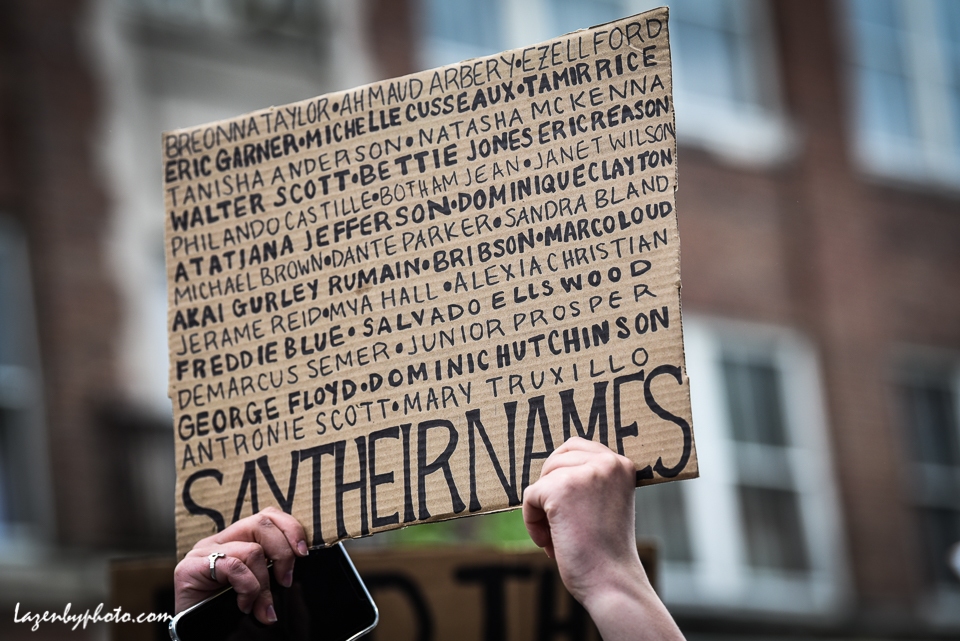 BREONNA TAYLOR•AHMAUD ARBERY•EZELL FORD
ERIC GARNER•MICHELLE CUSSEAUX•TAMIR RICE
TANISHA ANDERSON•NATASHA MCKENNA
WALTER SCOTT•BETTIE JONES ERIC REASON
PHILANDO CASTILLE•BOTHAM JEAN•JANET WILSON
ATATIANA JEFFERSON•DOMINIQUE CLAYTON
MICHAEL BROWN•DANTE PARKER•SANDRA BLAND
AKAI GURLEY RUMAIN•BRIBSON•MARCO LOUD
JERAME REID•MYA HALL•ALEXIA CHRISTIAN
FREDDIE BLUE•SALVADO ELLSWOOD
DEMARCUS SEMER•JUNIOR PROSPER
GEORGE FLOYD•DOMINIC HUTCHINSON
ANTRONIE SCOTT•MARY TRUXILLO
SAY THEIR NAMES
Lazenbyphoto.com